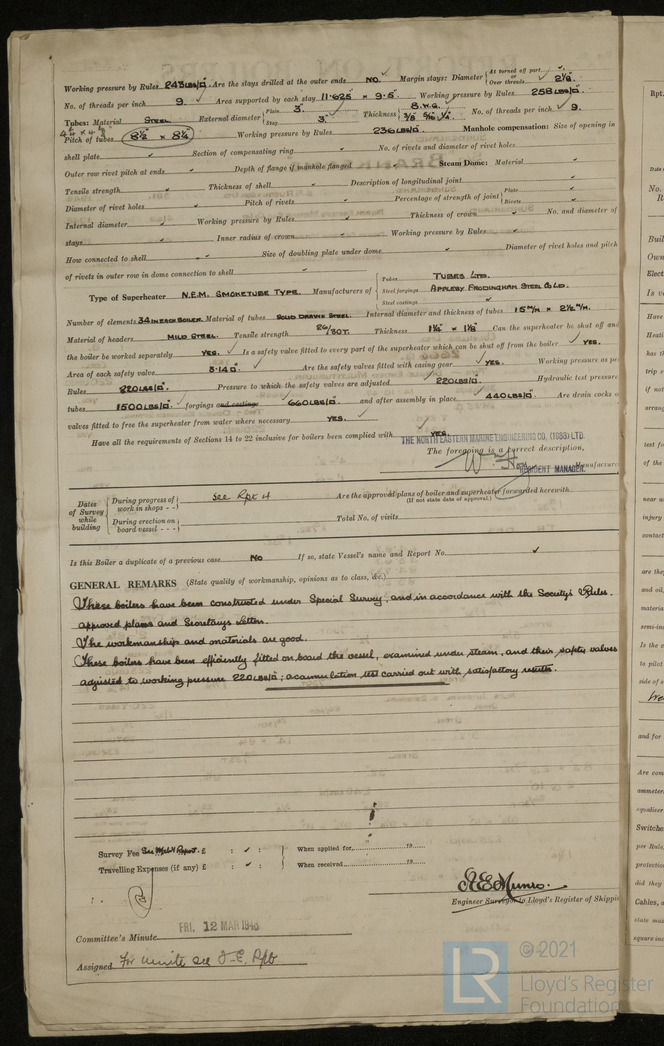 Working pressure by Rules 243 LBS/□" Are the stays drilled at the outer ends NO. Margin stays: Diameter { At turned off part, or Over threads 2⅛"
No. of threads per inch 9. Area supported by each stay 11·625 × 9·5" Working pressure by Rules 258 LBS/□"
Tubes: Material STEEL External diameter { Plain 3" Stay 3" Thickness { 8. W.G. No. of threads per inch 9.
Pitch of tubes 8½" × 8¼" Working pressure by Rules 236 LBS/□" Manhole compensation: Size of opening in
shell plate Section of compensating ring No. of rivets and diameter of rivet holes
Outer row rivet pitch at ends Depth of flange if manhole flanged Steam Dome: Material
Tensile strength Thickness of shell Description of longitudinal joint
Diameter of rivet holes Pitch of rivets Percentage of strength of joint { Plate Rivets
Internal diameter Working pressure by Rules Thickness of crown No. and diameter of
stays Inner radius of crown Working pressure by Rules
How connected to shell Size of doubling plate under dome Diameter of rivet holes and pitch
of rivets in outer row in dome connection to shell
Type of Superheater N.E.M. SMOKETUBE TYPE. Manufacturers of { Tubes TUBES LTD.
Steel forgings APPLEBY FRODINGHAM STEEL CO LTD.
Steel castings
Number of elements 34 IN EACH BOILER Material of tubes SOLID DRAWN STEEL Internal diameter and thickness of tubes 15 M/M × 2½ M/M.
Material of headers MILD STEEL. Tensile strength 26/30T. Thickness 1⅛" × 1⅛" Can the superheater be shut off and
the boiler be worked separately YES. Is a safety valve fitted to every part of the superheater which can be shut off from the boiler YES.
Area of each safety valve 3·14 □" Are the safety valves fitted with easing gear YES. Working pressure as per
Rules 220 LBS/□" Pressure to which the safety valves are adjusted 220 LBS/□" Hydraulic test pressure
tubes 1500 LBS/□" forgings and castings 660 LBS/□" and after assembly in place 440 LBS/□" Are drain cocks or
valves fitted to free the superheater from water where necessary YES.
Have all the requirements of Sections 14 to 22 inclusive for boilers been complied with YES
THE NORTH EASTERN MARINE ENGINEERING CO. (1938) LTD.
The foregoing is a correct description,
RESIDENT MANAGER. Manufacturer
Dates of Survey while building { During progress of work in shops - - see Rpt 4 Are the approved plans of boiler and superheater forwarded herewith
(If not state date of approval.)
During erection on board vessel - - - Total No. of visits
Is this Boiler a duplicate of a previous case No If so, state Vessel's name and Report No.
GENERAL REMARKS (State quality of workmanship, opinions as to class, &c.)
These boilers have been constructed under Special Survey, and in accordance with the Society's Rules.
approved plans and Secretarys letters.
The workmanship and materials are good.
These boilers have been efficiently fitted on board the vessel, examined under steam, and their safety valves
adjusted to working pressure 220 LBS/□"; accumulation test carried out with satisfactory results.
Survey Fee See Mchy Report. £ : : When applied for 19
Travelling Expenses (if any) £ : : When received 19
Engineer Surveyor to Lloyd's Register of Shippin
FRI. 12 MAR 1948
Committee's Minute
Assigned For minute see F.E. Rpt
© 2021
LR
Lloyd's Register
Foundation